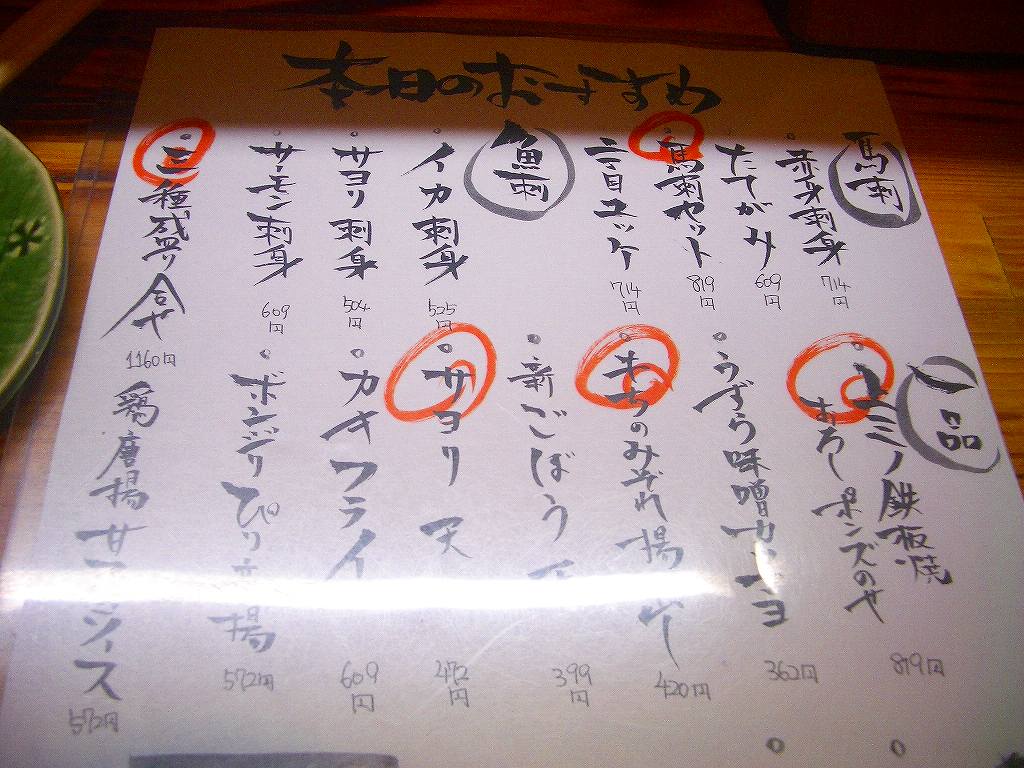 本日のおすすめ
馬刺
赤身刺身
714円
たてがみ
609円
馬刺セット
819円
二子目ユッケ
714円
魚刺
イカ刺身
525円
サヨリ刺身
504円
サーモン刺身
609円
三種盛り合せ
1160円
一品
上ミノ鉄板焼
おろしポンズのせ
819円
うずら味噌カツ
362円
もちのみぞれ揚
420円
新ごぼう天
399円
サヨリ天
472円
カキフライ
609円
ボンジリぴり辛揚
572円
鶏唐揚サルサソース
572円